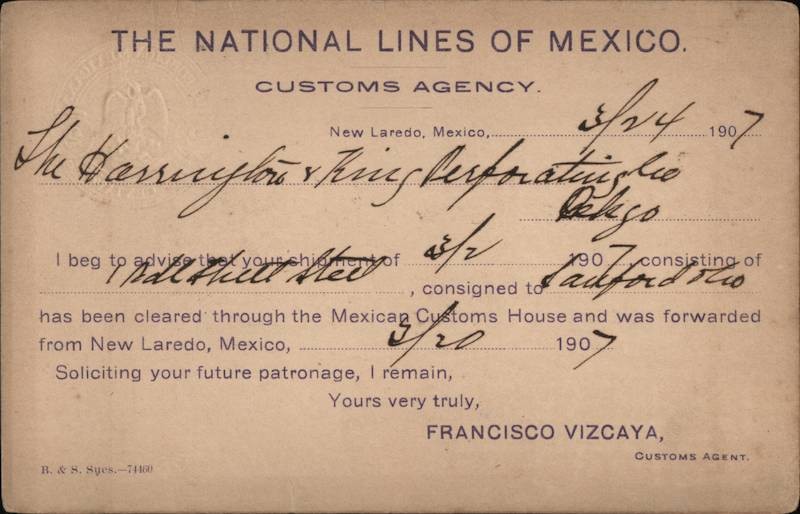 THE NATIONAL LINES OF MEXICO.
CUSTOMS AGENCY.
New Laredo, Mexico, 3/24 1907
The Harrington & King Perforating Co
Chgo
I beg to advise that your shipment of 3/2 1907, consisting of
1 Bdl Sheet Steel, consigned to Sanford & Co
has been cleared through the Mexican Customs House and was forwarded
from New Laredo, Mexico, 3/20 1907
Soliciting your future patronage, I remain,
Yours very truly,
FRANCISCO VIZCAYA,
CUSTOMS AGENT.
R. & S. Sucs.—74460